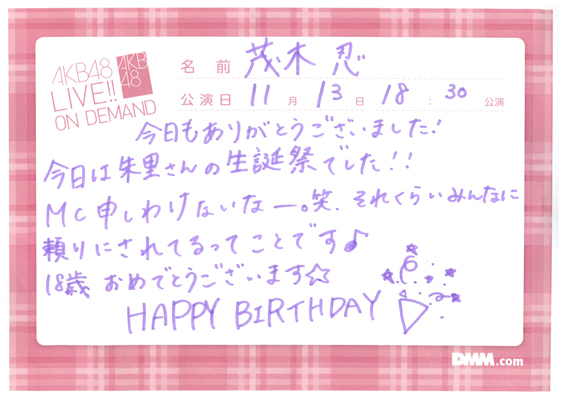 AKB48
LIVE!!
ON DEMAND
AKB
48
名前 茂木 忍
公演日 11月13日 18:30 公演
今日もありがとうございました!
今日は朱里さんの生誕祭でした!!
MC申しわけないなー。笑. それくらいみんなに
頼りにされてるってことです♪
18歳 おめでとうございます☆
HAPPY BIRTHDAY
DMM.com